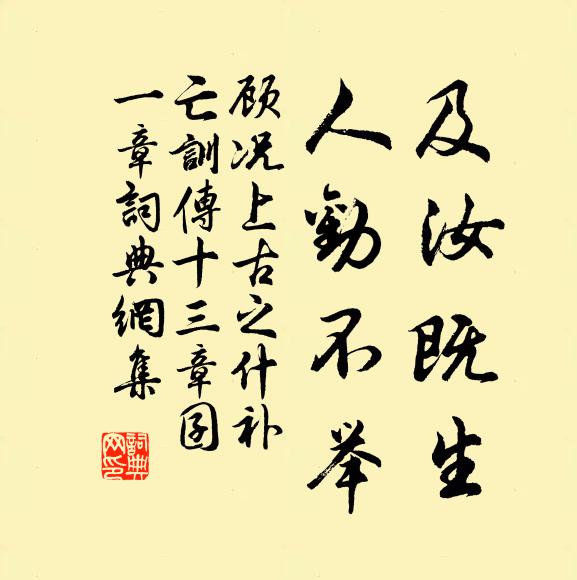 及汝既生
人勸不举
顾况上古之什补
亡訓傳十三章囝
一章詞典網集
詞典
网印